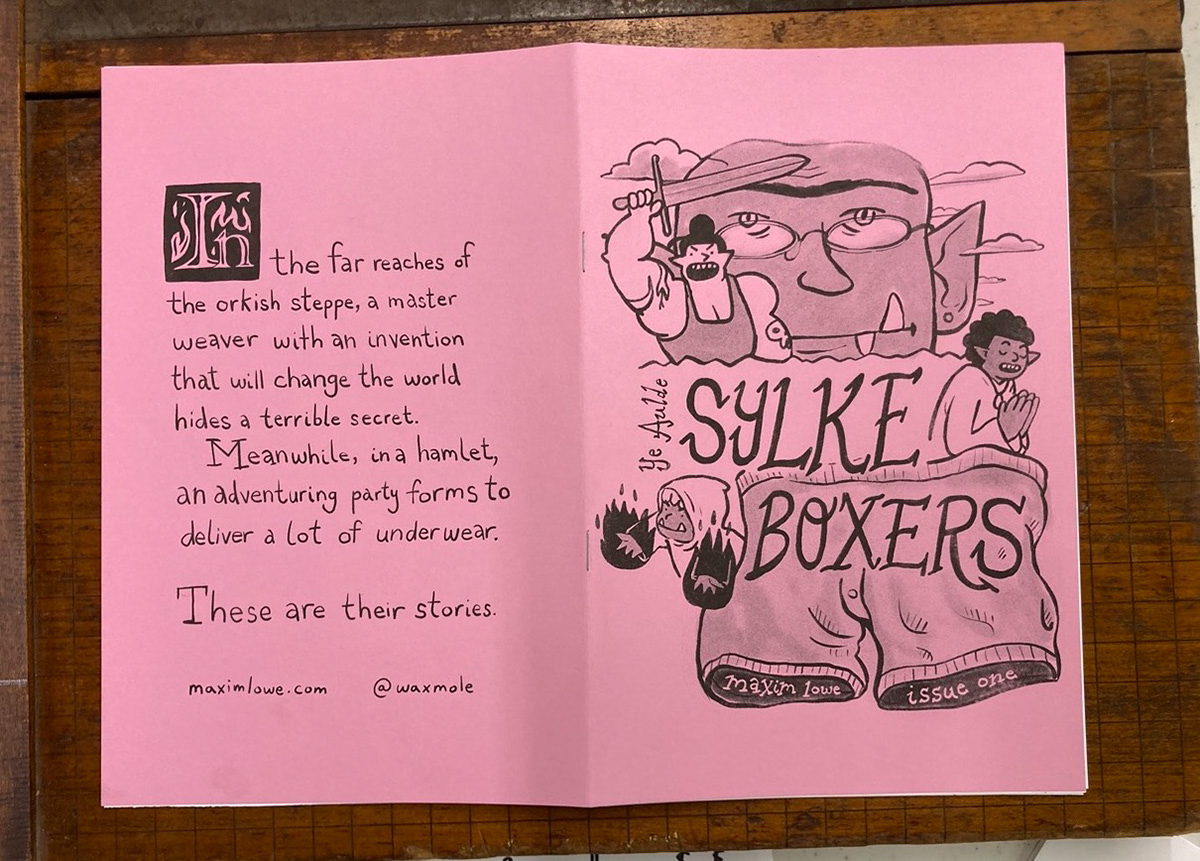 In the far reaches of
the orkish steppe, a master
weaver with an invention
that will change the world
hides a terrible secret.
Meanwhile, in a hamlet,
an adventuring party forms to
deliver a lot of underwear.
These are their stories.
maximlowe.com @waxmole
Ye Aulde
SYLKE
BOXERS
maxim lowe
issue one